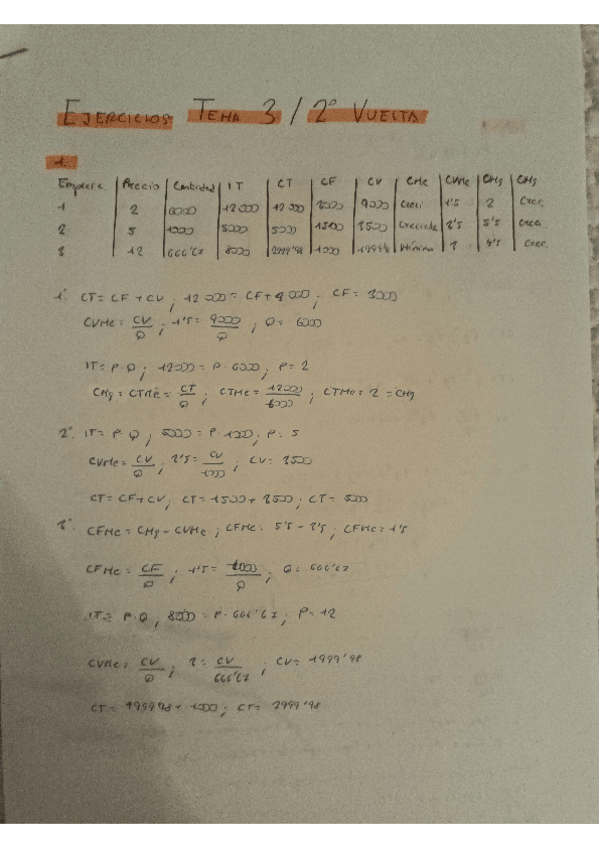 EJERCICIOS TEMA 3 / 2º VUELTA
1.
Empresa Precio Cantidad IT CT CF CV CMe CVMe CMg CMg
1 2 6000 12000 12000 3000 9000 Creci 1'5 2 Crec.
2 5 1000 5000 5000 1500 3500 Creciente 3'5 5'5 Crec.
3 12 666'67 8000 2999'98 1000 1999'98 Mínimo 3 4'5 Crec.
1º CT = CF + CV ; 12000 = CF + 9000 ; CF = 3000
CVMe = CV/Q ; 1'5 = 9000/Q ; Q = 6000
IT = P·Q ; 12000 = P·6000 ; P = 2
CMg = CTMe = CT/Q ; CTMe = 12000/6000 ; CTMe = 2 = CMg
2º IT = P·Q ; 5000 = P·1000 ; P = 5
CVMe = CV/Q ; 3'5 = CV/1000 ; CV = 3500
CT = CF + CV ; CT = 1500 + 3500 ; CT = 5000
3º CFMe = CMg - CVMe ; CFMe =
CFMe = 1'5
CFMe = CF/Q ; 1'5 = 1000/Q ; Q = 666'67
IT = P·Q ; 8000 = P·666'67 ; P = 12
CVMe = CV/Q ; 3 = CV/666'67 ; CV = 1999'98
CT = 1999'98 + 1000 ; CT = 2999'98